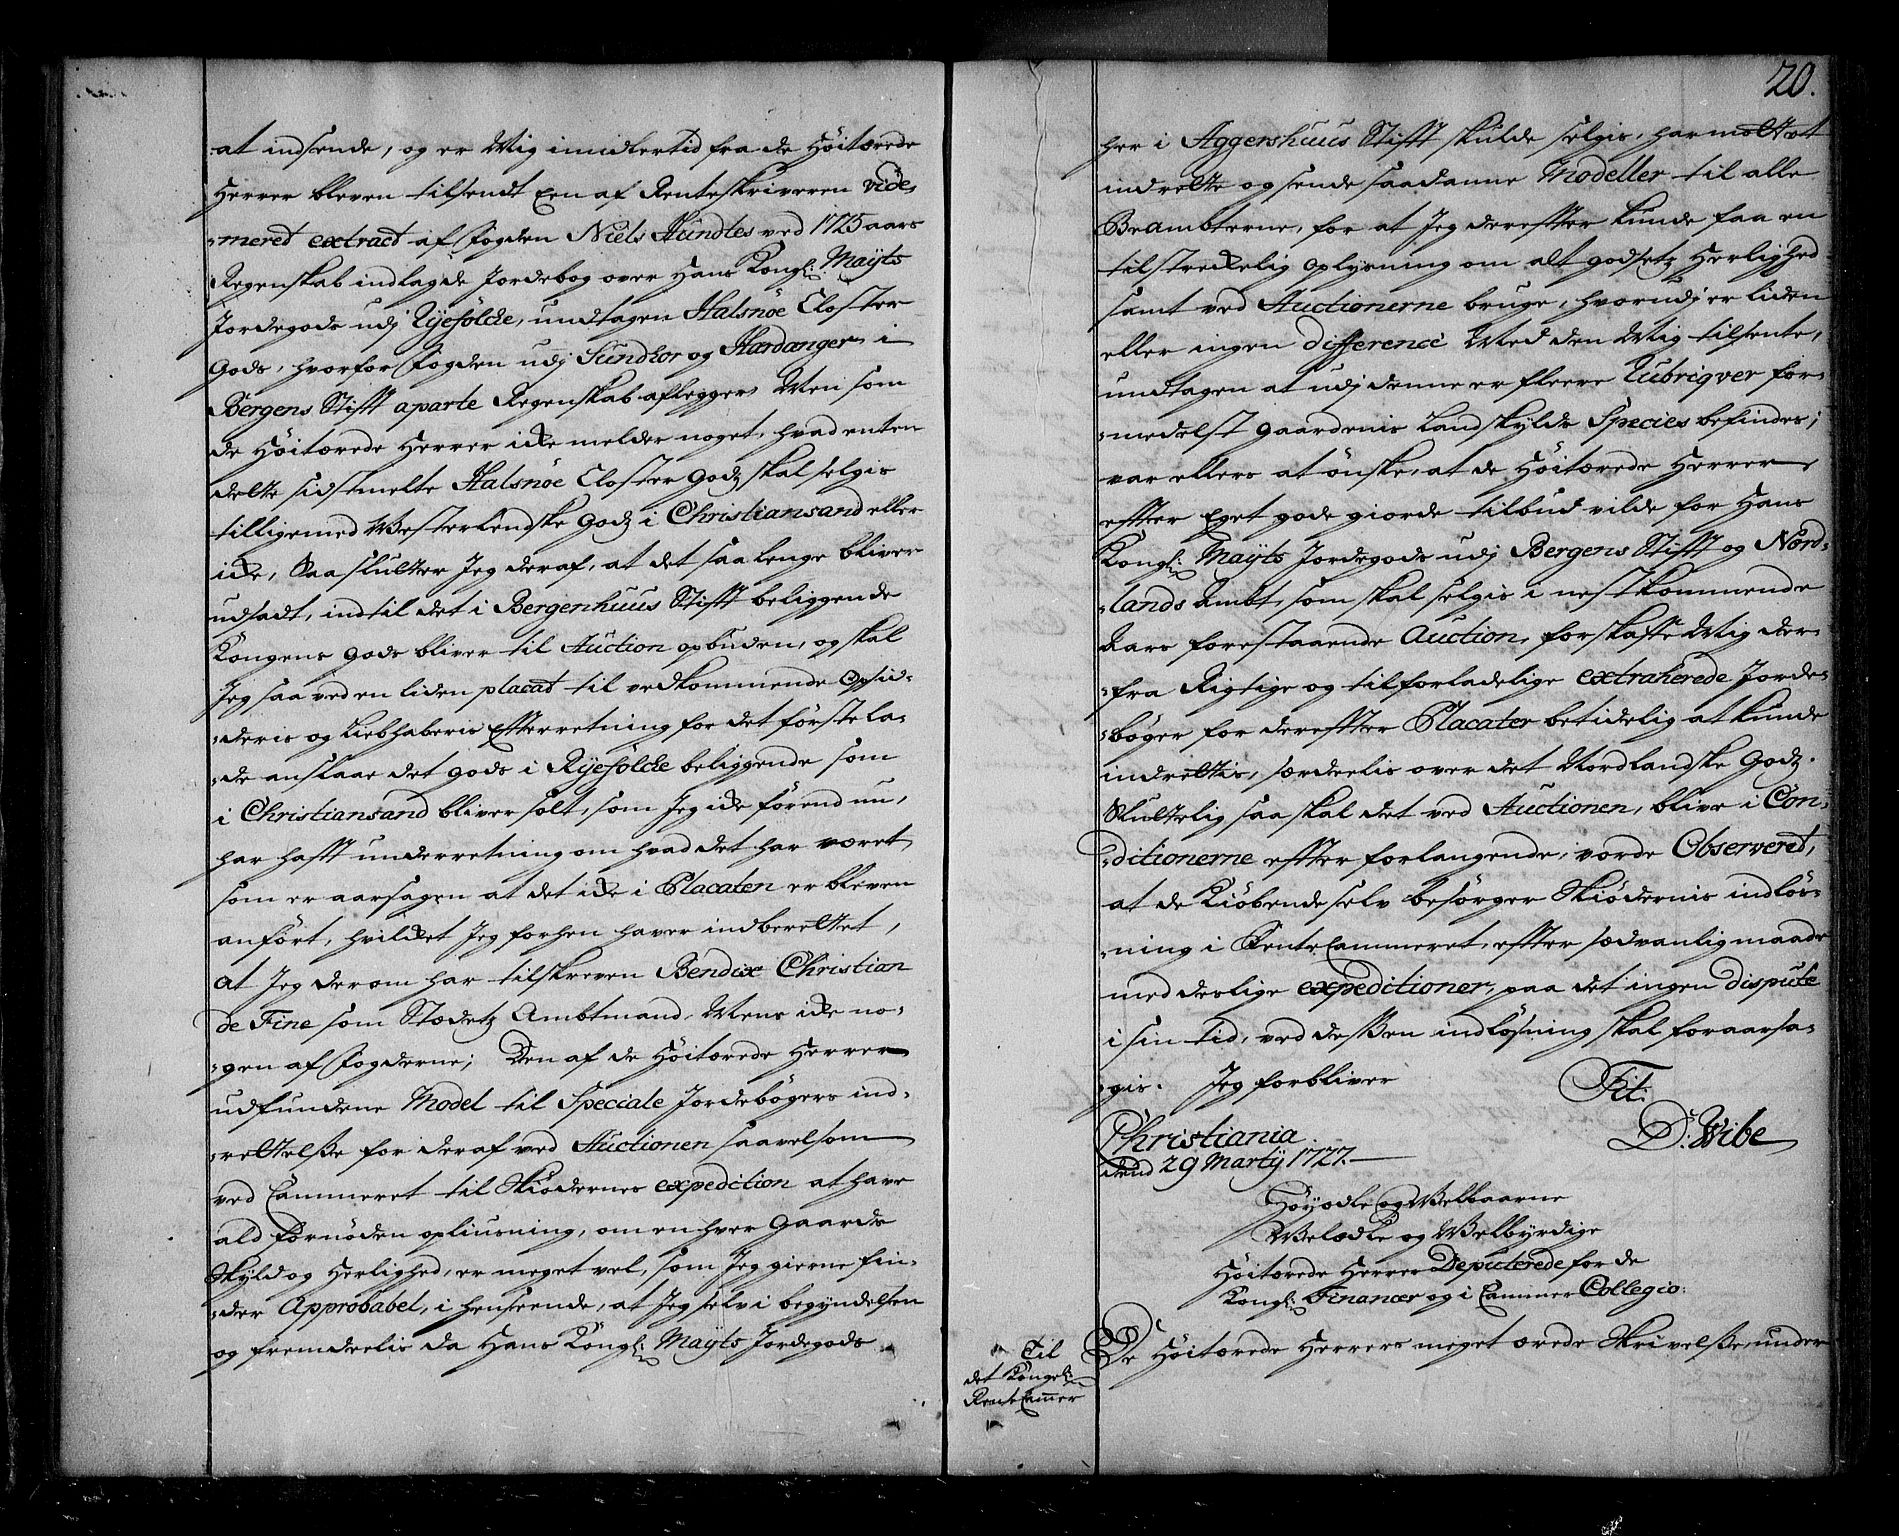 at indsende, og er Mig imidlertid fra de Høitærede
Herrer bleven tilsendt Een af Renteskriveren vide-
-meret extract af Fogden Niels Hundtes ved 1725 aars
Regenskab indlagde Jordebog over Hans Kongl: Mayts
Jordegods udj Ryefölche, undtagen Halsnöe Closter
Gods, hvorfor Fogden udj Sundhor og Hardanger i
Bergens Stifft aparte Regenskab aflegger, Men som
de Høitærede Herrer icke melder noget, hvad enten
dette sidstmelte Halsnöe Closter Godz skal selgis
tilligemed Westerlendske Godz i Christiansand eller
icke, Saa slutter Jeg deraf, at det saa lenge bliver
udsadt, indtil det i Bergenhuus Stifft beliggende
Kongens Gods bliver til Auction opbuden, og skal
Jeg saa ved en liden placat til vedkommende Opsid-
-deris og Liebhaberis Efterretning for det förste la-
-de anslaae det Gods i Ryefölcke beliggende som
i Christiansand bliver solt, som Jeg icke förend nu,
har hafft underretning om hvad det har været,
som er aarsagen at det icke i Placaten er bleven
anfört, hvilcket Jeg forhen haver indberettet,
at Jeg derom har tilskreven Bendix Christian
de Fine som Stædetz Ambtmand, Mens icke no-
-gen af Fogderne; Den af de Høitærede Herrer
udfundene Model til Speciale Jordebögers ind-
-rettelsse for deraf ved Auctionen saavelsom
ved Cammeret til Skiödernes expedition at have
ald fornöden opliusning, om en hver Gaards
Skyld og Herlighed, er meget vel, som Jeg gierne fin-
-der Approbabel, i henseende, at Jeg selv i begyndelsen
og fremdeelis da Hans Kongl: Mayts Jordegods
20.
her i Aggershuus Stifft skulde selgis, har mottet
indrette og sende saadanne Modeller til alle
Beambterne, for at Jeg derefter kunde faa en
tilstreckelig Oplysning om alt godsetz Herlighed
samt ved Auctionerne bruge, hvorudj er liden
eller ingen difference Med den Mig tilsente,
undtagen at udj denne er fleere Rubriqver for-
-medelst Gaardenis Landskylds Species befindes;
var ellers at önske, at de Høitærede Herrer,
effter Eget gode giorde tilbud vilde for Hans
Kongl: Mayts Jordegods udj Bergens Stifft og Nord-
-lands Ambt, som skal selgis i nestkommende
Aars forestaaende Auction, forskaffe Mig der-
-fra Rigtige og tilforladelige extraherede Jorde-
-böger for derefter Placater betidelig at kunde
indrettis, særdeelis over det Nordlandske Godz.
Sluttelig saa skal det ved Auctionen, blive i Con-
-ditionerne effter forlangende, vorde Observeret,
at de Kiöbende selv besörger Skiödernis indlös-
-ning i RenteCammeret, effter sædvanlig maade
med deslige expeditioner, paa det ingen dispute
i sin tid, ved dessen indlösning skal foraarsa-
-gis. Jeg forbliver
Tit:
Christiania
D: Wibe
dend 29 Martij 1727.
Höyædle og Welbaarne
Welædle og Welbyrdige
Høitærede Herrer Deputerede for de
Kongl: Financer og i Cammer Collegio:
Til
det Kongel:
RenteCammer
De Høitærede Herrers meget ærede Skrivelsse, under